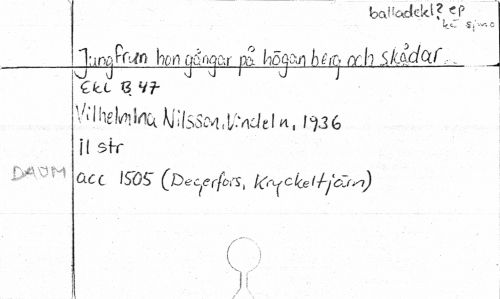 balladekl? ep
Jungfrun hon gångar på högan berg och skådar
Ekl B 47
Vilhelmina Nilsson, Vindeln, 1936
11 str
DAUM acc 1505 (Degerfors, Kryckeltjärn)